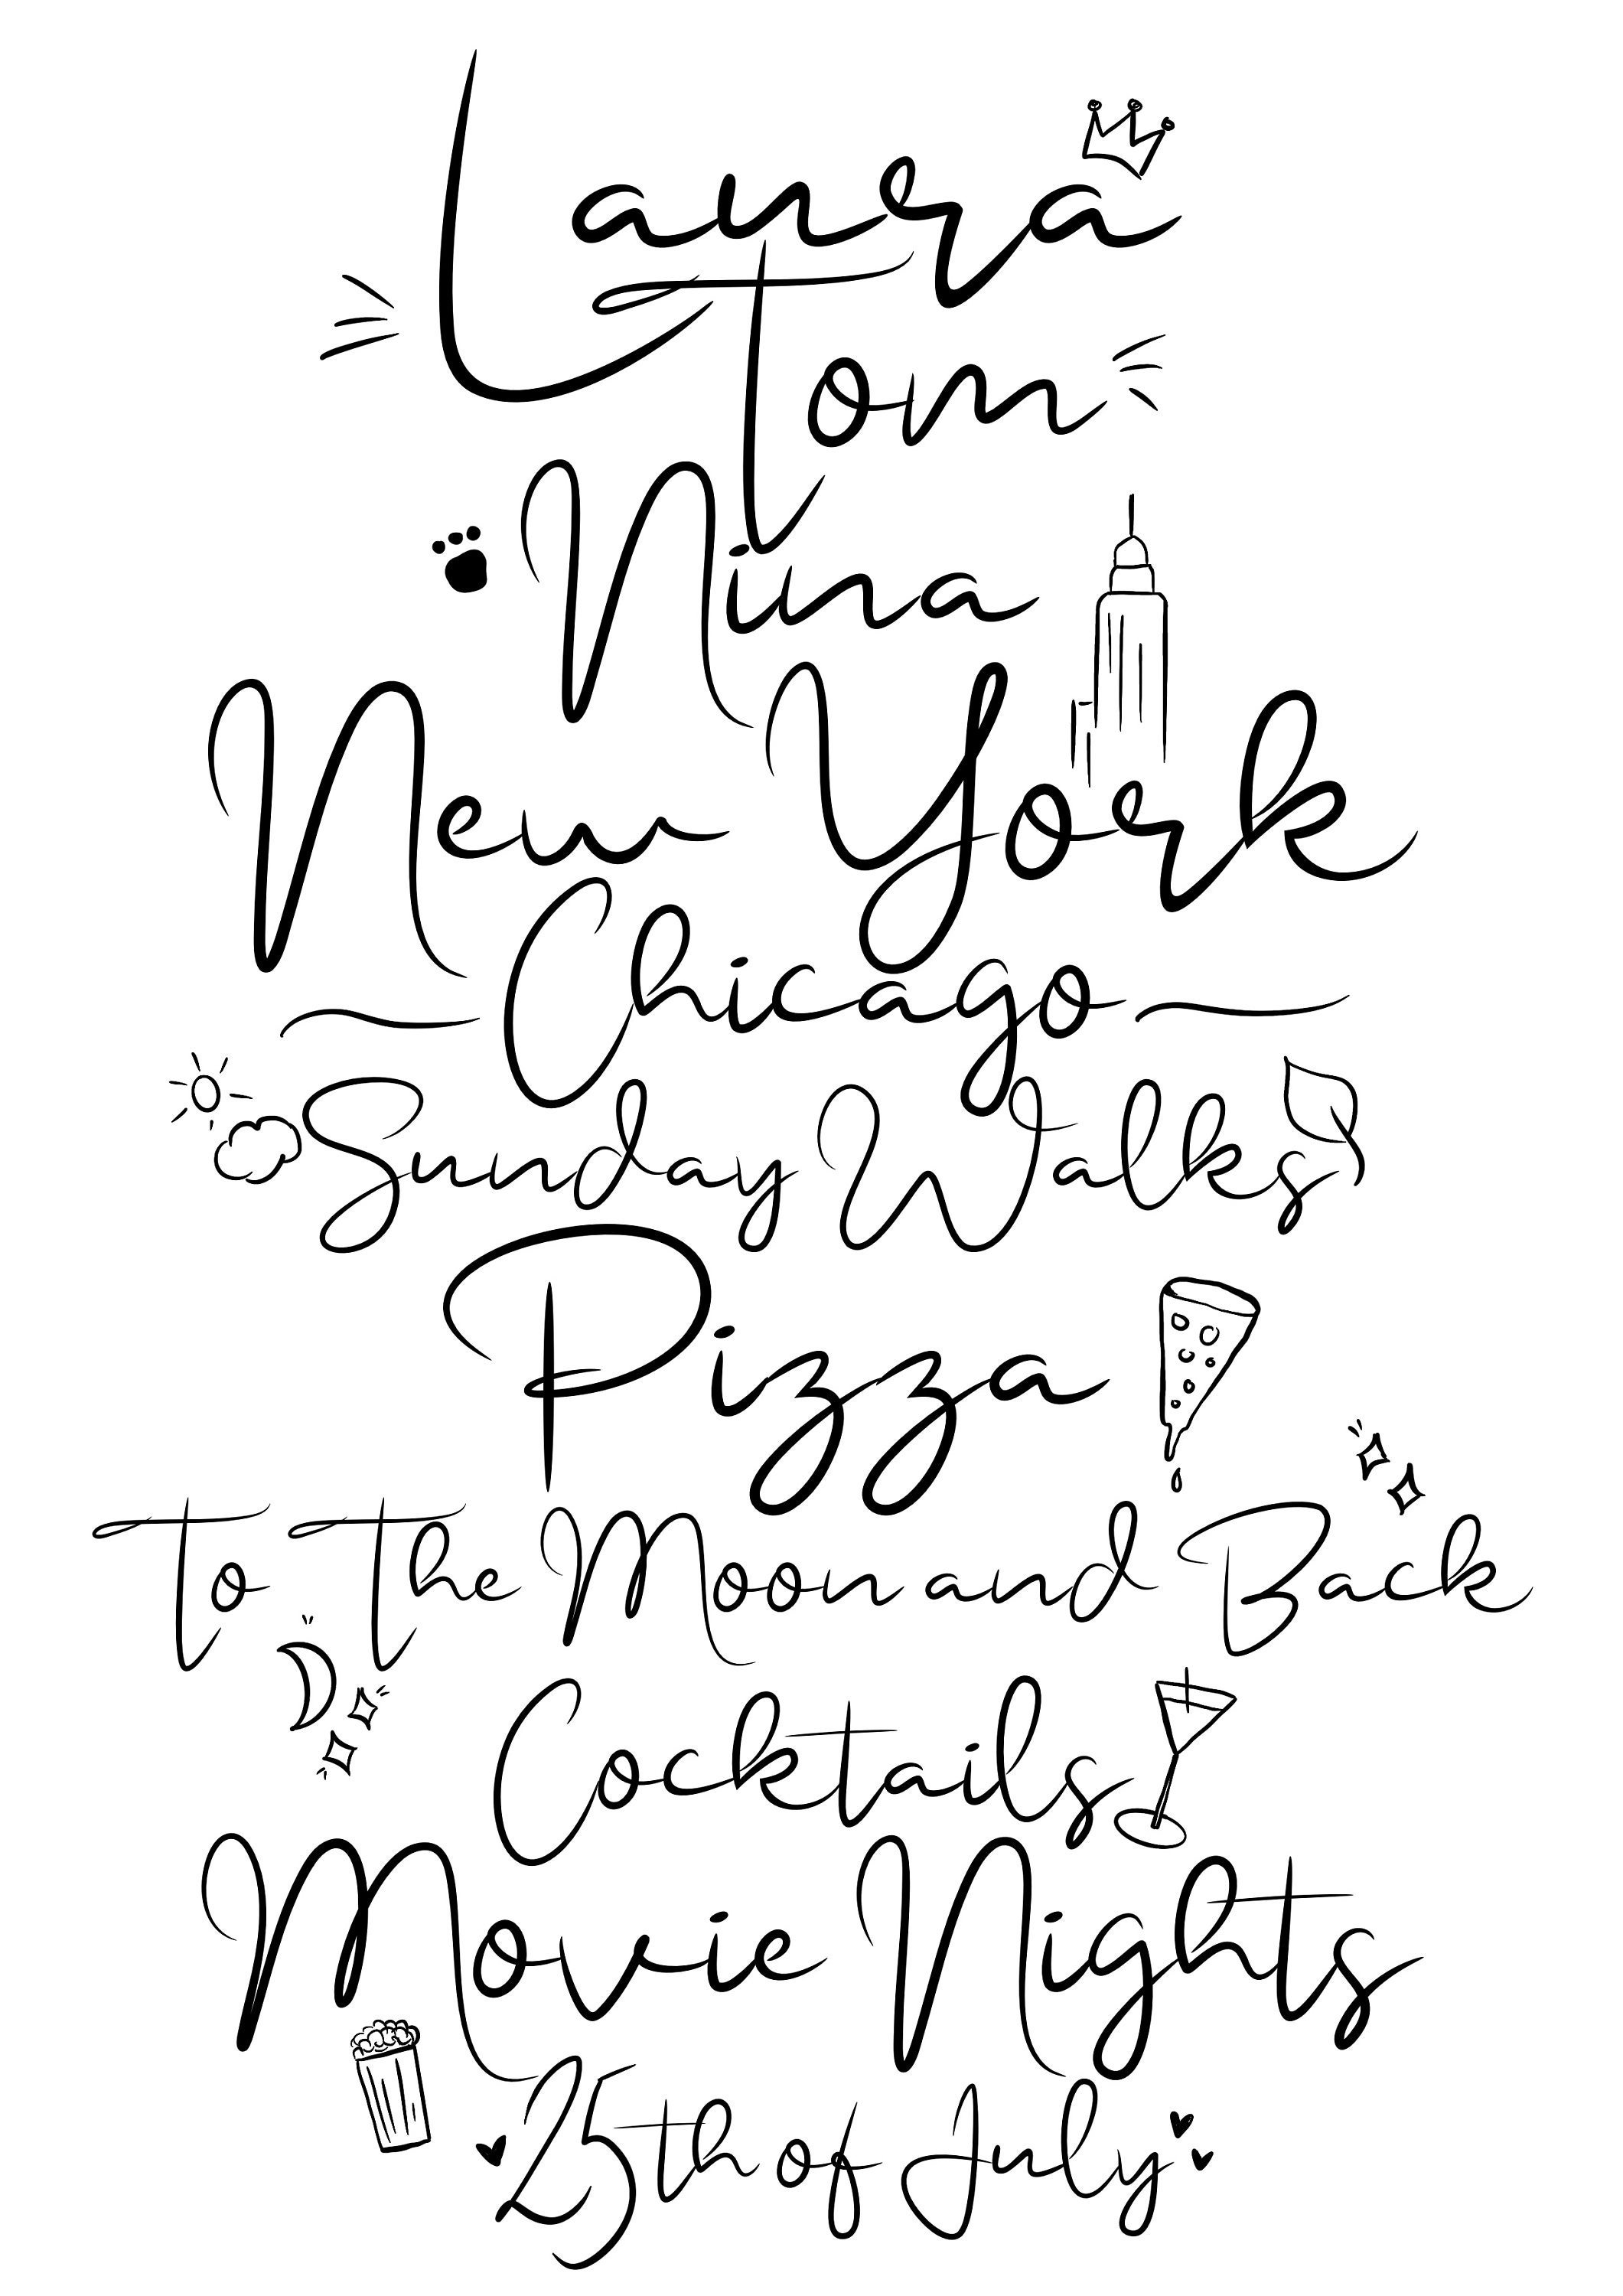 Laura
Tom
Nina
New York
Chicago
Sunday Walks
Pizza
To the Moon and Back
Cocktails
Movie Nights
25th of July